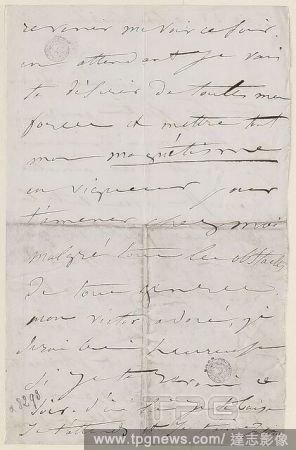 revenir me voir ce soir.
en attendant je vais
te désirer de toutes mes
forces et mettre tout
mon magnétisme
en vigueur pour
t'amener chez moi
malgré tous les obstacles
de tout genre
mon victor adoré, je
serai bien heureuse
si je te
soir. d'ici je te baise
Je t'attends
a.8298
TPG
www.tpgnews.com / 達志影像